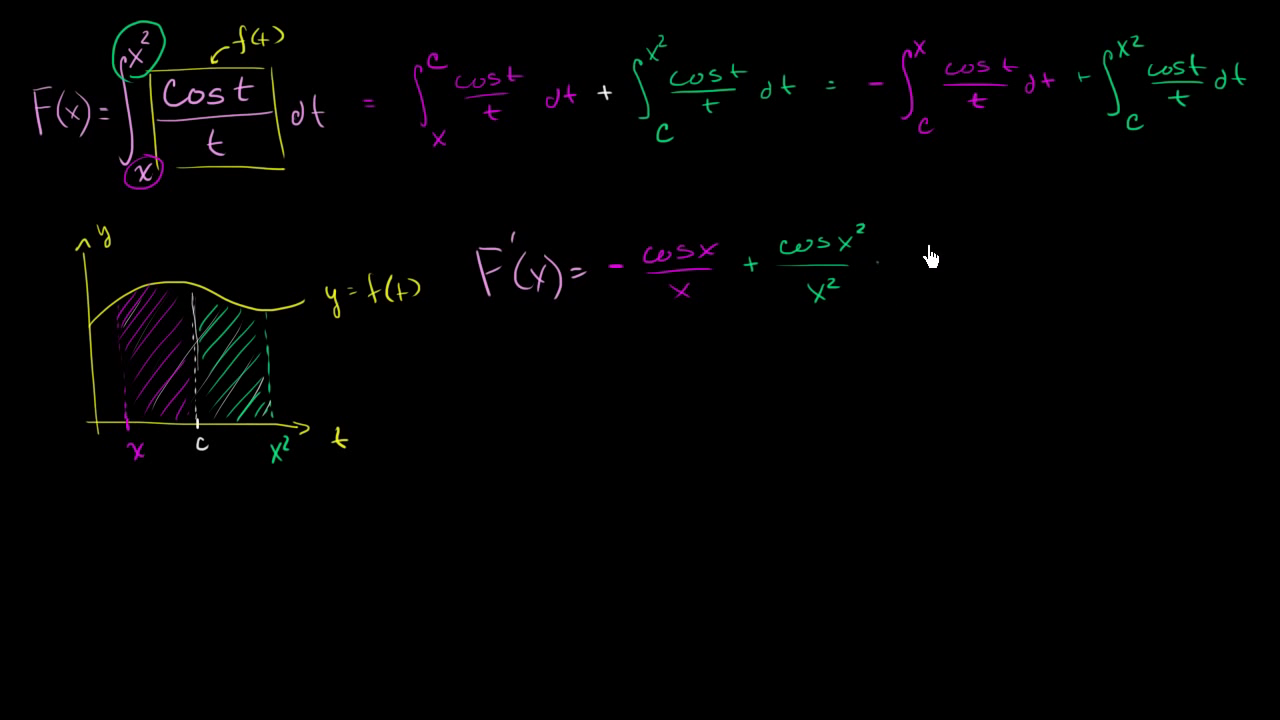 f(t)
F(x) = ∫ₓ^(x²) cos t / t dt = ∫ₓ^c cos t / t dt + ∫_c^(x²) cos t / t dt = - ∫_c^x cos t / t dt + ∫_c^(x²) cos t / t dt
y
F'(x) = - cos x / x + cos x² / x² ·
y = f(t)
t
x c x²